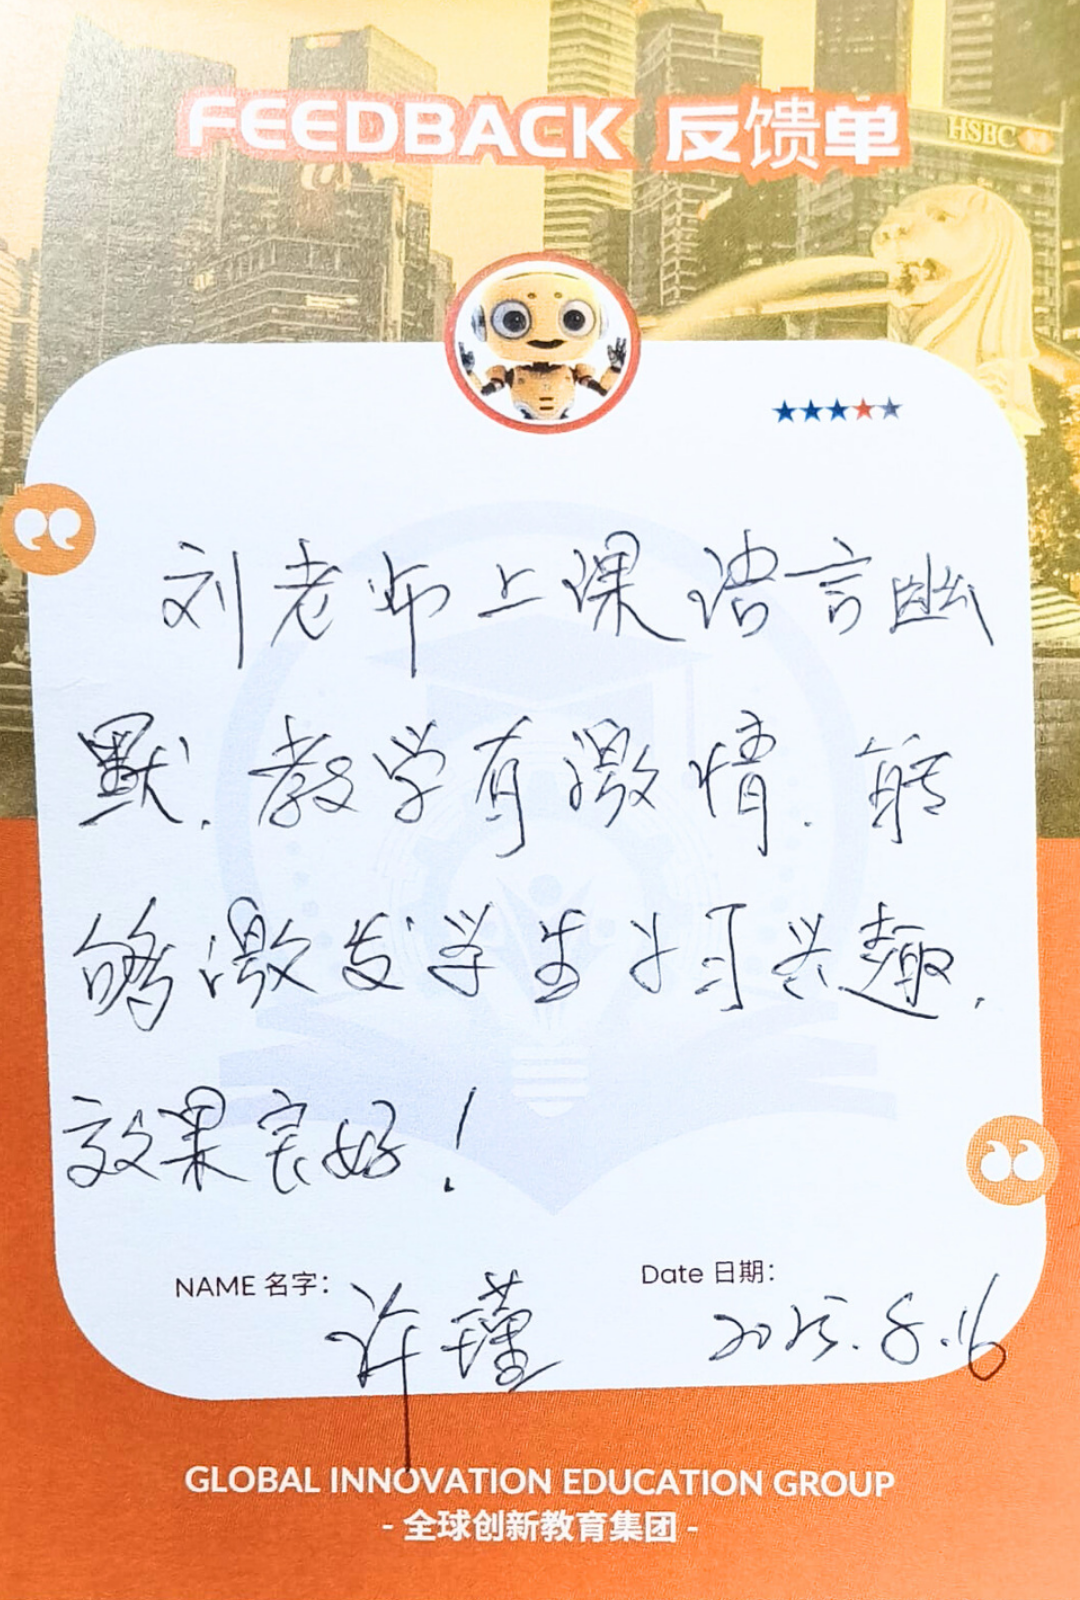 FEEDBACK 反馈单
HSBC
刘老师上课语言幽
默.教学有激情.能
够激发学生学习兴趣.
效果良好!
NAME 名字: 许瑾
Date 日期: 2025.8.16
GLOBAL INNOVATION EDUCATION GROUP
- 全球创新教育集团 -